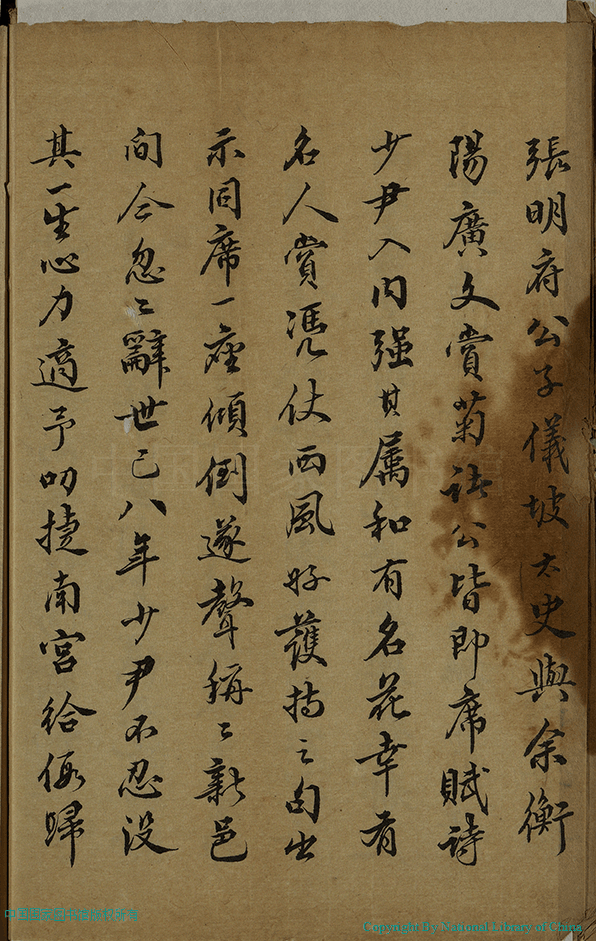 張明府公子儀坡太史與余衡
陽廣文賞菊諸公皆即席賦詩
少尹入內強其属和有名花幸有
名人賞凭仗西風好護持之句出
示同席一座傾倒遂聲稱〻新邑
间今忽〻辭世已八年少尹不忍没
其一生心力適予叨捷南宫给假歸
中国国家图书馆
Copyright By National Library of China